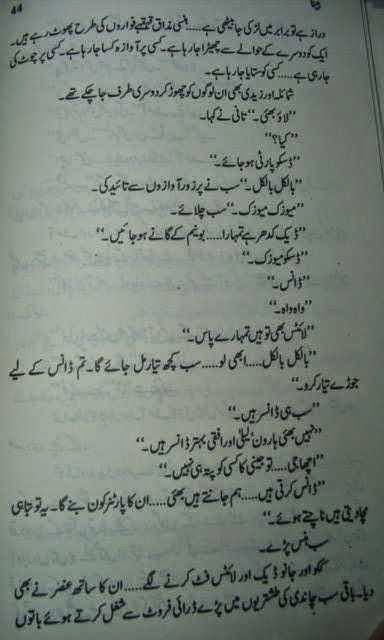 44
دراز ہے تو برابر میں لڑکی جا بیٹھی ہے.....ہنسی مذاق قہقہے فواروں کی طرح پھوٹ رہے ہیں۔
ایک کو دوسرے کے حوالے سے چھیڑا جا رہا ہے۔ کسی پر آوازہ کسا جا رہا ہے۔ کسی پر چوٹ کی
جا رہی ہے.....کسی کو ستایا جا رہا ہے۔
شمائلہ اور زیدی بھی ان لوگوں کو چھوڑ کر دوسری طرف جا چکے تھے۔
’’لاؤ بھئی۔‘‘ تانی نے کہا۔
’’کیا؟‘‘
’’ڈسکو پارٹی ہو جائے۔‘‘
’’بالکل بالکل۔‘‘ سب نے پر زور آوازوں سے تائید کی۔
’’میوزک میوزک۔‘‘ سب چلائے۔
’’ڈیک کدھر ہے تمہارا.....بونیم کے گانے ہو جائیں۔‘‘
’’ڈسکو میوزک۔‘‘
’’ڈانس۔‘‘
’’واہ واہ۔‘‘
’’لائٹس بھی تو ہیں تمہارے پاس۔‘‘
’’بالکل بالکل.....ابھی لو.....سب کچھ تیار مل جائے گا۔ تم ڈانس کے لیے
جوڑے تیار کرو۔‘‘
’’سب ہی ڈانسر ہیں۔‘‘
’’نہیں بھئی ہارون، لیلیٰ اور افقی بہتر ڈانسر ہیں۔‘‘
’’اچھا جی.....تو جینی کا کسی کو پتہ ہی نہیں۔‘‘
’’ڈانس کرتی ہیں.....ہم جانتے ہیں بھئی.....ان کا پارٹنر کون بنے گا۔ یہ تو تباہی
مچا دیتی ہیں ناچتے ہوئے۔‘‘
سب ہنس پڑے۔
گگو اور جانو ڈیک اور لائٹس فٹ کرنے لگے.....ان کا ساتھ عنصر نے بھی
دیا۔ باقی سب چاندی کی طشتریوں میں پڑے ڈرائی فروٹ سے شغل کرتے ہوئے باتوں